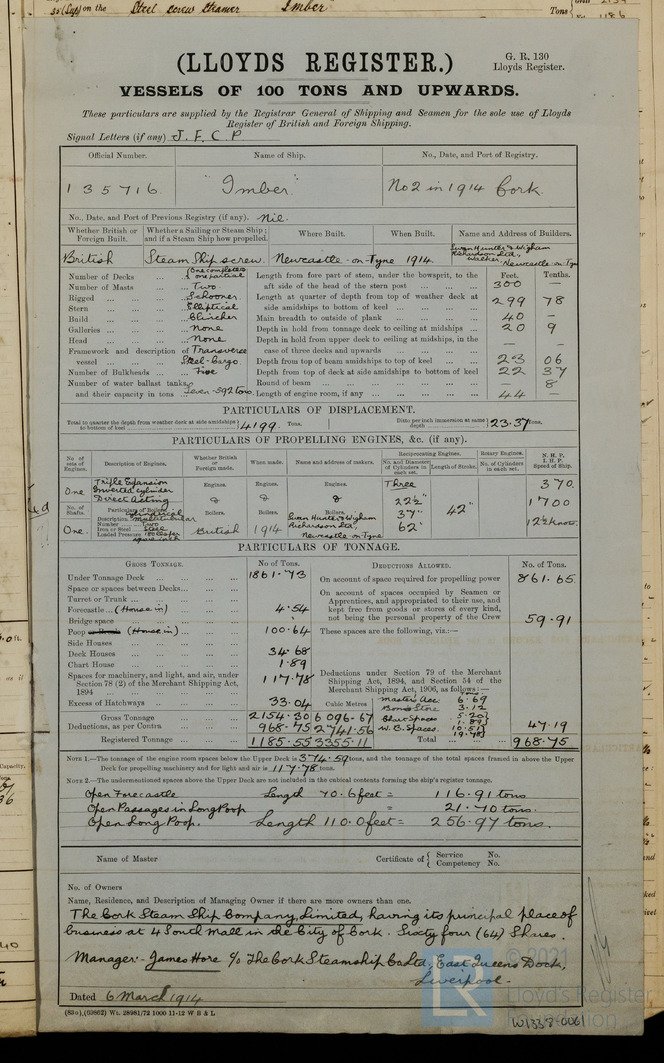 30 (Sep) on the Steel screw steamer Imber
Tons
1186
(LLOYDS REGISTER.)
G. R. 130
Lloyds Register.
VESSELS OF 100 TONS AND UPWARDS.
These particulars are supplied by the Registrar General of Shipping and Seamen for the sole use of Lloyds
Register of British and Foreign Shipping.
Signal Letters (if any) J. F. C. P
Official Number. Name of Ship. No., Date, and Port of Registry.
135716. "Imber" No 2 in 1914 Cork.
No., Date, and Port of Previous Registry (if any). Nil.
Whether British or Foreign Built. Whether a Sailing or Steam Ship; and if a Steam Ship how propelled. Where Built. When Built. Name and Address of Builders.
British Steam Ship screw. Newcastle-on-Tyne 1914. Swan Hunter & Wigham Richardson Ltd, Walker, Newcastle-on-Tyne
Number of Decks ... One complete & one partial
Number of Masts ... Two
Rigged ... Schooner
Stern ... Elliptical
Build ... Clincher
Galleries ... None
Head ... None
Framework and description of vessel ... Transverse Steel-Cargo.
Number of Bulkheads ... Five
Number of water ballast tanks, and their capacity in tons ... Seven - 592 tons.
Feet. Tenths.
Length from fore part of stem, under the bowsprit, to the aft side of the head of the stern post ... 300 —
Length at quarter of depth from top of weather deck at side amidships to bottom of keel ... 299 78
Main breadth to outside of plank ... 40 —
Depth in hold from tonnage deck to ceiling at midships ... 20 9
Depth in hold from upper deck to ceiling at midships, in the case of three decks and upwards ... — —
Depth from top of beam amidships to top of keel ... 23 06
Depth from top of deck at side amidships to bottom of keel 22 37
Round of beam ... — 8
Length of engine room, if any ... 44 —
PARTICULARS OF DISPLACEMENT.
Total to quarter the depth from weather deck at side amidships to bottom of keel 4199. Tons. Ditto per inch immersion at same depth 23.37 Tons.
PARTICULARS OF PROPELLING ENGINES, &c. (if any).
No of sets of Engines. Description of Engines. Whether British or Foreign made. When made. Name and address of makers. Reciprocating Engines. Rotary Engines. N. H. P. I. H. P. Speed of Ship.
No. and Diameter of Cylinders in each set. Length of Stroke. No. of Cylinders in each set.
One Triple Expansion Inverted cylinder Direct Acting Engines. Engines. Engines. Three 370.
& & & 22½" 42" 1700
No. of Shafts. Particulars of Boilers. Boilers. Boilers. Boilers. 37"
Description Cylindrical Multitubular
Number Two
Iron or Steel Steel
Loaded Pressure 180 lbs per square inch
One. British 1914 Swan Hunter & Wigham Richardson Ltd, Newcastle-on-Tyne 62" 12½ knots
PARTICULARS OF TONNAGE.
GROSS TONNAGE. No. of Tons. DEDUCTIONS ALLOWED. No. of Tons.
Under Tonnage Deck ... 1861.73
Space or spaces between Decks ...
Turret or Trunk ...
Forecastle ... (House in) 4.54
Bridge space
Poop or Break (House in) ... 100.64
Side Houses ...
Deck Houses ... 34.68
Chart House ... 1.89
Spaces for machinery, and light, and air, under Section 78 (2) of the Merchant Shipping Act, 1894 ... 117.78
Excess of Hatchways ... 33.04
Cubic Metres
Gross Tonnage ... 2154.30 6096.67
Deductions, as per Contra ... 968.75 2741.56
Registered Tonnage ... 1185.55 3355.11
On account of space required for propelling power 861.65
On account of spaces occupied by Seamen or Apprentices, and appropriated to their use, and kept free from goods or stores of every kind, not being the personal property of the Crew 59.91
These spaces are the following, viz.:—
Deductions under Section 79 of the Merchant Shipping Act, 1894, and Section 54 of the Merchant Shipping Act, 1906, as follows:—
Masters Acc. 6.69
Boosn Store 3.12
5.20
1.89
W. B. Spaces 10.51
19.78
47.19
Total ... 968.75
NOTE 1.—The tonnage of the engine room spaces below the Upper Deck is 374.59 tons, and the tonnage of the total spaces framed in above the Upper
Deck for propelling machinery and for light and air is 117.78 tons.
NOTE 2.—The undermentioned spaces above the Upper Deck are not included in the cubical contents forming the ship's register tonnage.
Open Forecastle Length 70.6 feet = 116.91 tons
Open Passages in Long Poop = 21.70 tons.
Open Long Poop. Length 110.0 feet = 256.97 tons.
Name of Master Certificate of { Service No. Competency No.
No. of Owners
Name, Residence, and Description of Managing Owner if there are more owners than one.
The Cork Steam Ship Company, Limited, having its principal place of
business at 4 South Mall in the City of Cork. Sixty four (64) Shares.
Manager:- James Hore c/o The Cork Steamship Co Ltd, East Queens Dock,
Liverpool.
Dated 6 March 1914
(83o),(69862) Wt. 28981/72 1000 11-12 W B & L
© 2021
LR
Lloyd's Register
Foundation
W1338-0061